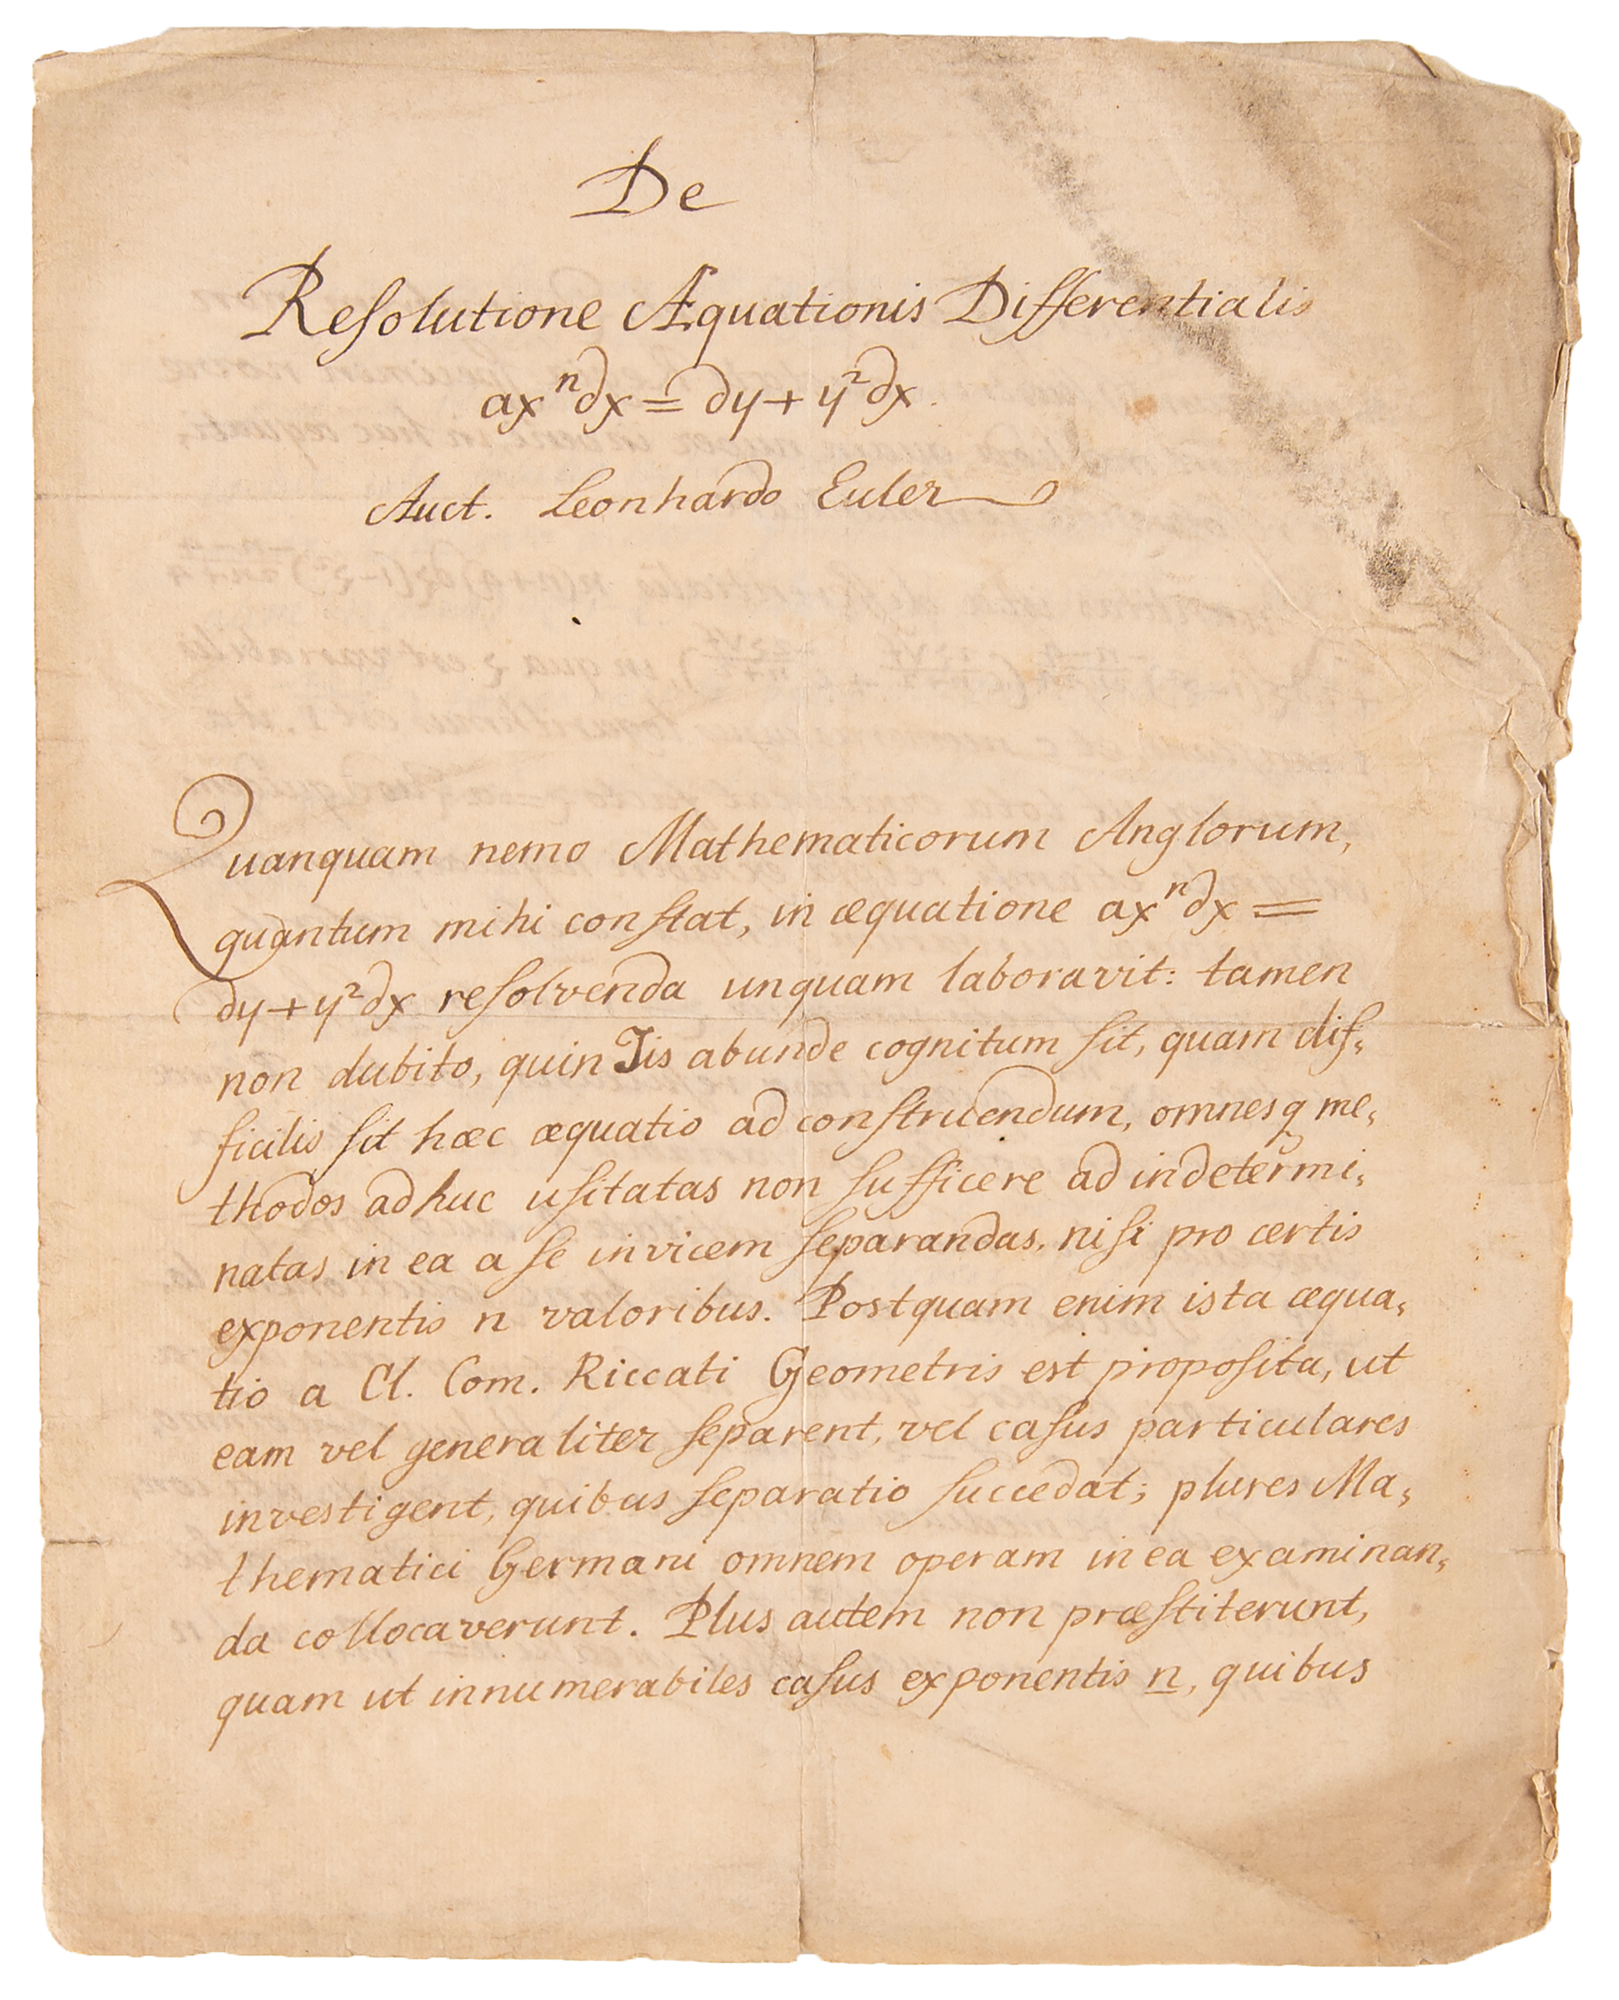 De
Reſolutione Æquationis Differentialis
axⁿdx = dy + y²dx.
Auct. Leonhardo Euler
Quanquam nemo Mathematicorum Anglorum,
quantum mihi conſtat, in æquatione axⁿdx =
dy + y²dx reſolvenda unquam laboravit: tamen
non dubito, quin Iis abunde cognitum ſit, quam dif-
ficilis ſit hæc æquatio ad conſtruendum, omnesq me-
thodos adhuc uſitatas non ſufficere ad indetermi-
natas in ea a ſe invicem ſeparandas, niſi pro certis
exponentis n valoribus. Postquam enim ista æqua-
tio a Cl. Com. Riccati Geometris est propoſita, ut
eam vel generaliter ſeparent, vel caſus particulares
investigent, quibus ſeparatio ſuccedat; plures Ma-
thematici Germani omnem operam in ea examinan-
da collocaverunt. Plus autem non præſtiterunt,
quam ut innumerabiles caſus exponentis n, quibus